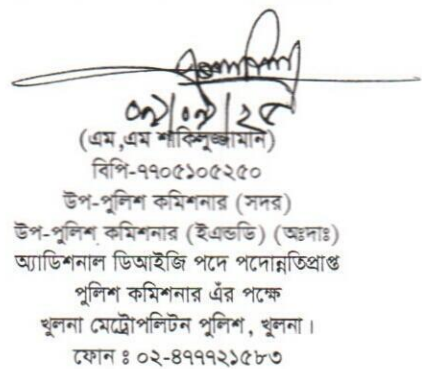 ০৯/০৯/২৫
(এম,এম শাকিলুজ্জামান)
বিপি-৭৭০৫১০৫২৫০
উপ-পুলিশ কমিশনার (সদর)
উপ-পুলিশ কমিশনার (ইএন্ডডি) (অঃদাঃ)
অ্যাডিশনাল ডিআইজি পদে পদোন্নতিপ্রাপ্ত
পুলিশ কমিশনার এঁর পক্ষে
খুলনা মেট্রোপলিটন পুলিশ, খুলনা।
ফোন ঃ ০২-৪৭৭৭২১৫৮৩